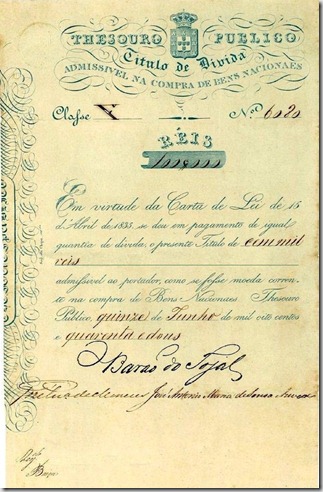 THESOURO PUBLICO
Titulo de Divida
ADMISSIVEL NA COMPRA DE BENS NACIONAES
Classe X Nº 6020
RÉIS
Em virtude da Carta de Lei de 15
d'Abril de 1835, se deu em pagamento de igual
quantia de divida, o presente Titulo de cem mil
reis
admissivel ao portador, como se fosse moeda corren-
te na compra de Bens Nacionaes Thesouro
Publico, quinze de Junho de mil oito centos
e quarenta e dous
Barão do Tojal
José Antonio Maria de Sousa